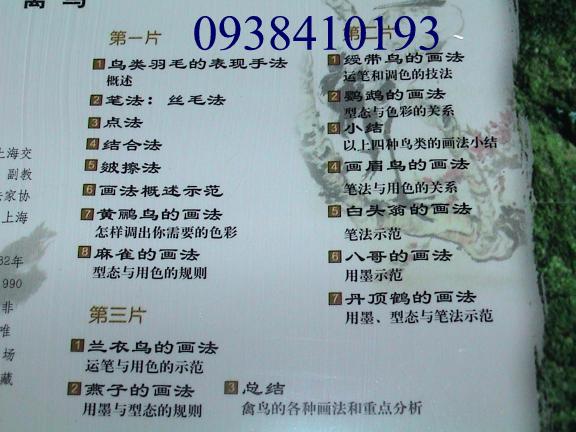 第一片
0938410193
第二片
1 鸟类羽毛的表现手法
概述
2 笔法：丝毛法
3 点法
4 结合法
5 皴擦法
6 画法概述示范
7 黄鹂鸟的画法
怎样调出你需要的色彩
8 麻雀的画法
型态与用色的规则
1 绶带鸟的画法
运笔和调色的技法
2 鹦鹉的画法
型态与色彩的关系
3 小结
以上四种鸟类的画法小结
4 画眉鸟的画法
笔法与用色的关系
5 白头翁的画法
笔法示范
6 八哥的画法
用墨示范
7 丹顶鹤的画法
用墨、型态与笔法示范
第三片
1 兰衣鸟的画法
运笔与用色的示范
2 燕子的画法
用墨与型态的规则
3 总结
禽鸟的各种画法和重点分析
上海交
副教
家协
上海
2年
990
非
唯
场
藏